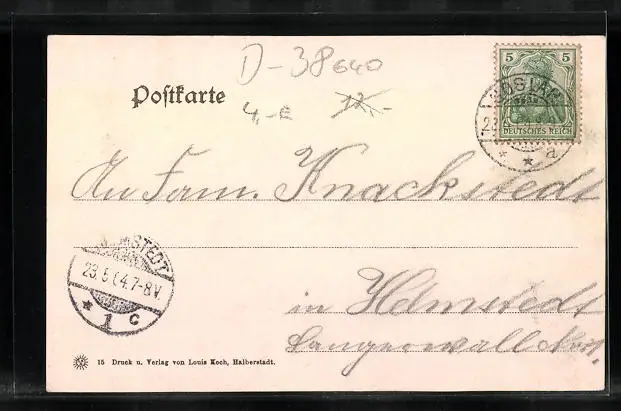 D-38640
Postkarte
4,-E 12,-
5 5
DEUTSCHES REICH
An Fam. Knackstedt
HELMSTEDT
23.5.04.7-8V.
* 1 c
in Helmstedt
Langerwall
15 Druck u. Verlag von Louis Koch, Halberstadt.